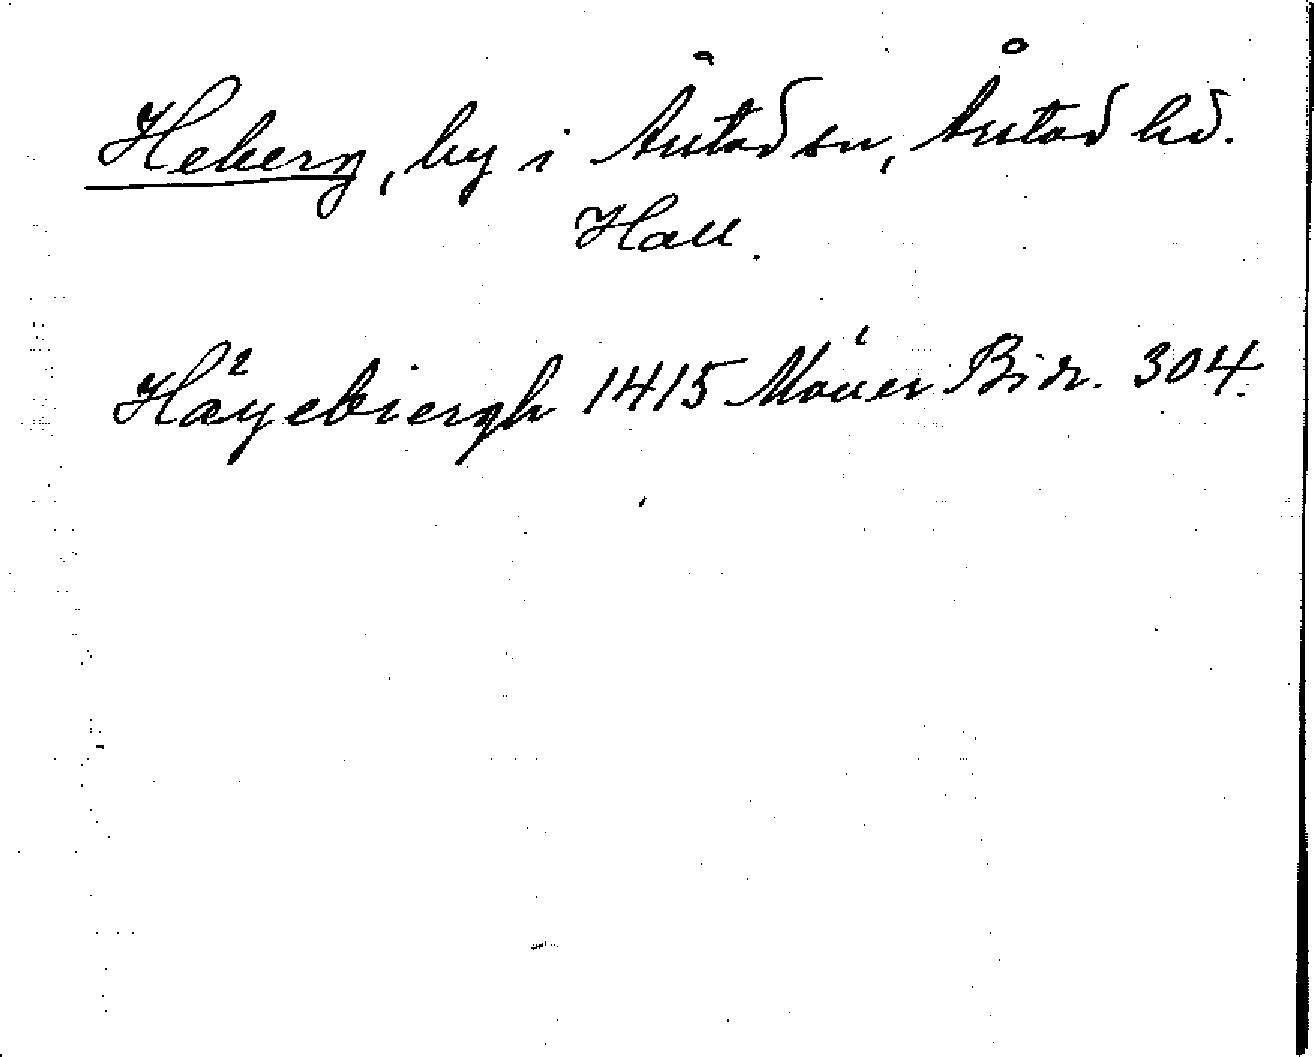 Heberg, by i Årstad sn, Årstad hd.
Hall.
Häyebiergh 1415 Möller Bidr. 304.